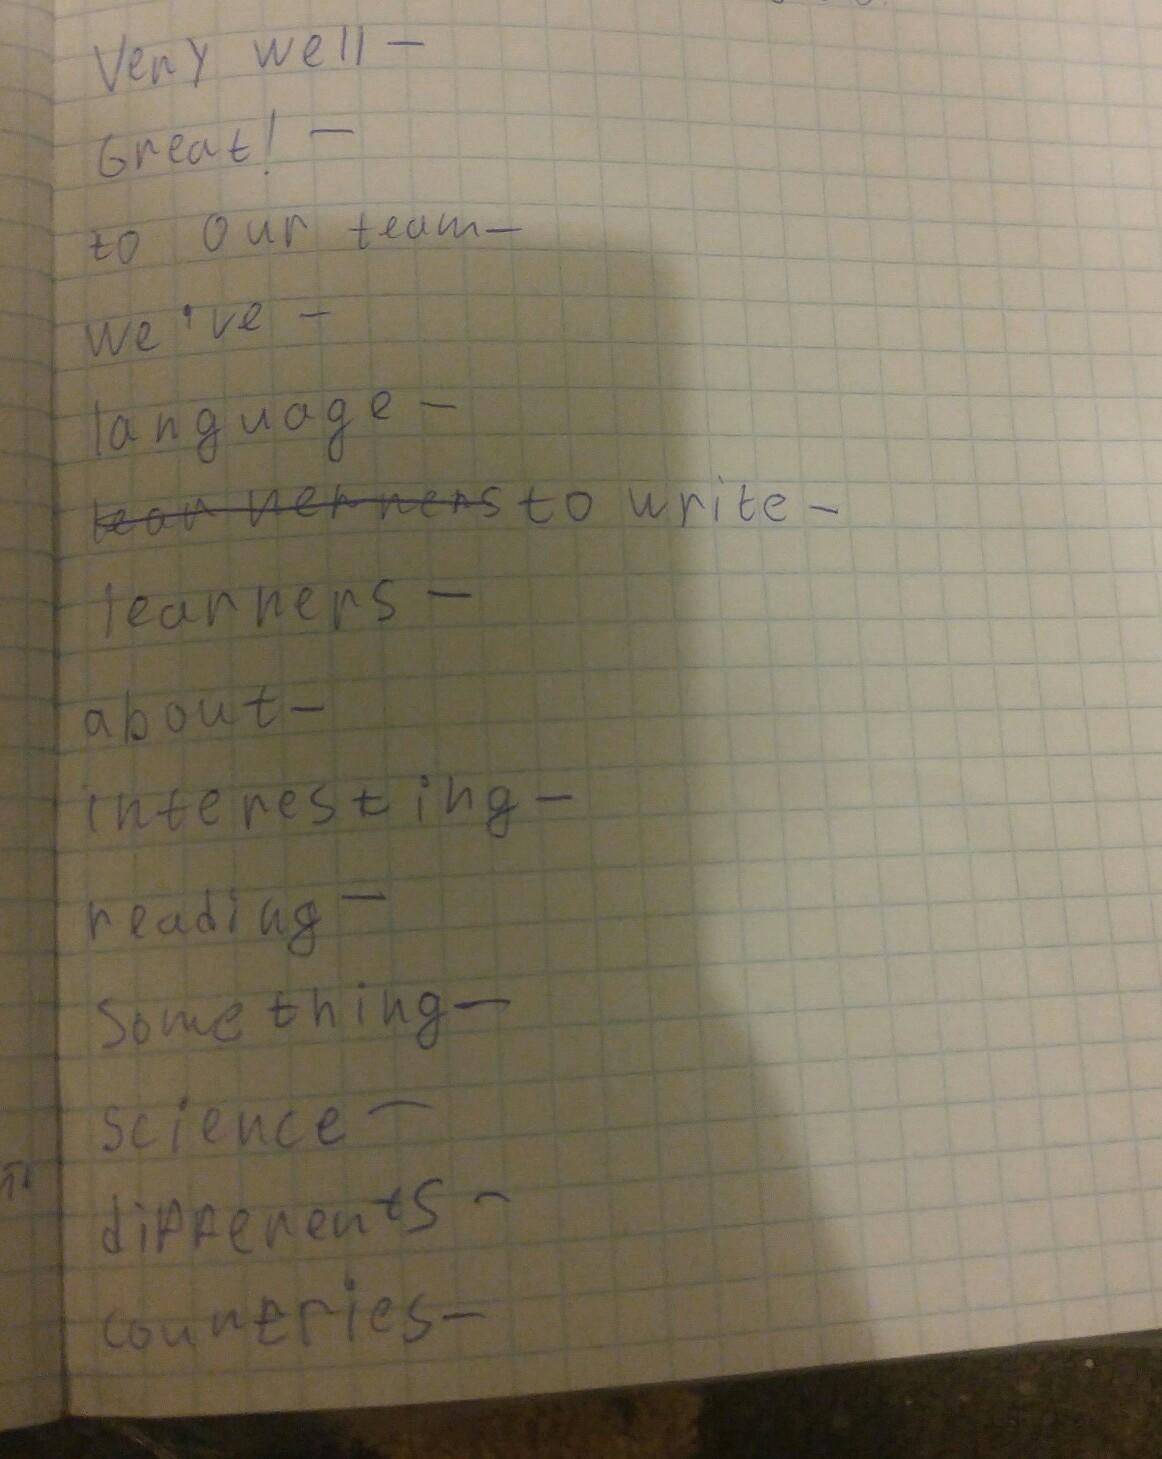 Very well –
Great! –
to our team –
we've –
language –
to write –
learners –
about –
interesting –
reading –
something –
science –
differents –
countries –